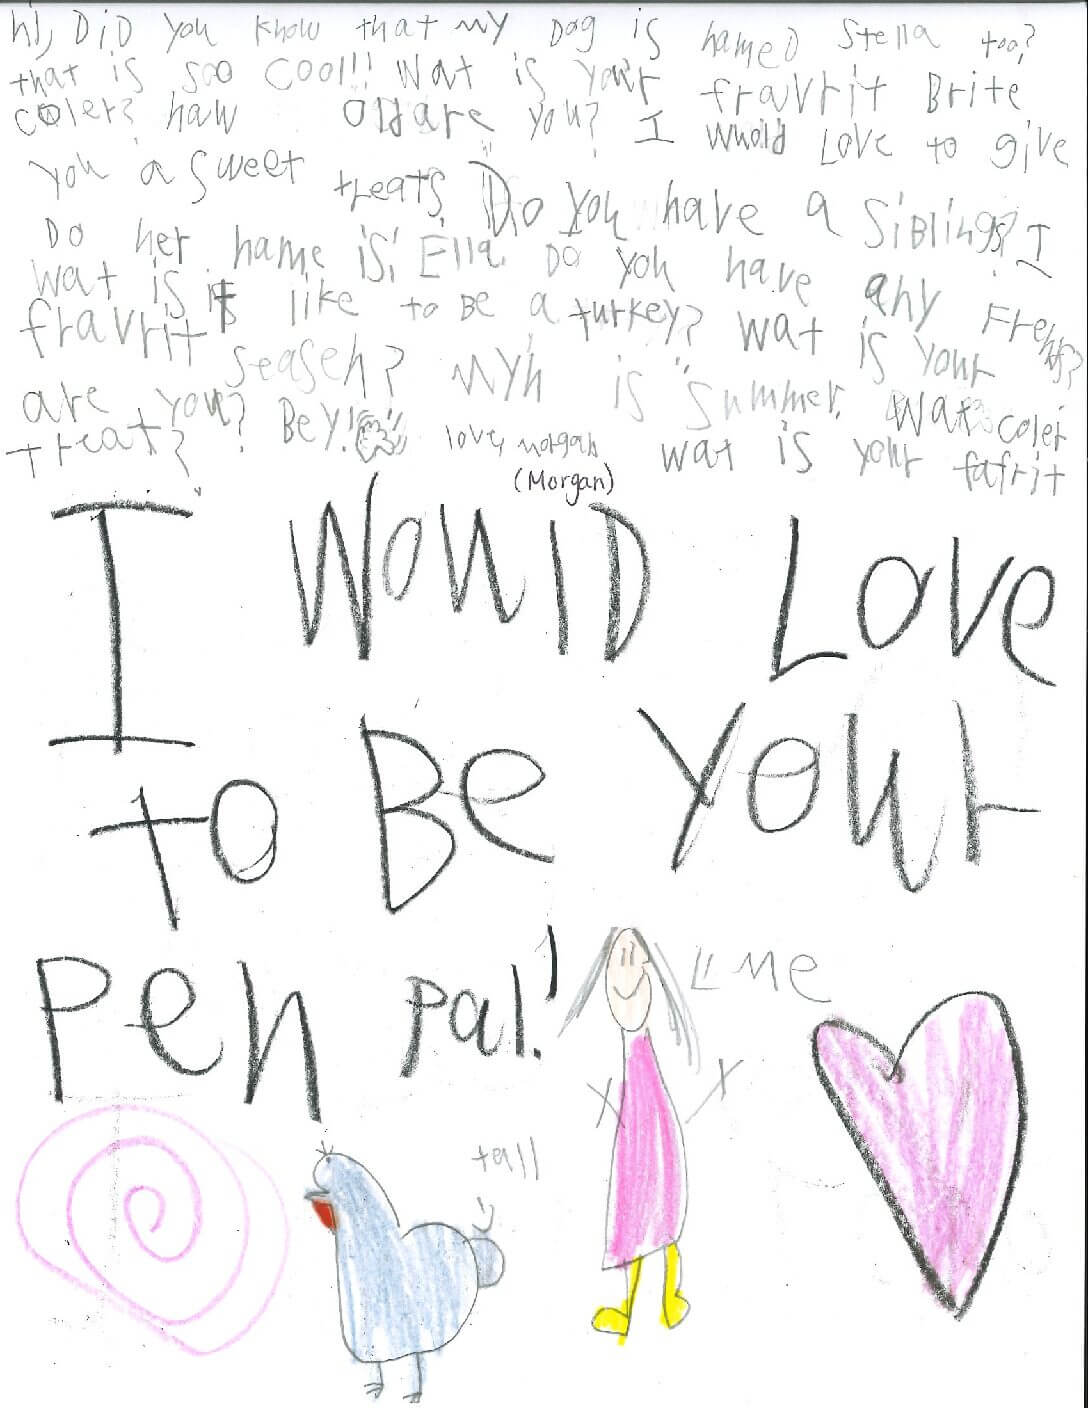 hi, DiD you know that my Dog is nameD Stella too?
that is soo cool!!! Wat is your fravrit Brite
coler? haw old are you? I whould Love to give
you a sweet treats Do you have a siblings? I
Do her name is Ella. Do you have any Frenhs?
wat is it like to Be a turkey? wat is your
fravrit seaseh? myh is summer. Wat coler
are you? Bey! love, morgan wat is your fafrit
treat?
(Morgan)
I WouID Love
to Be your
pen pal!
Me
tall